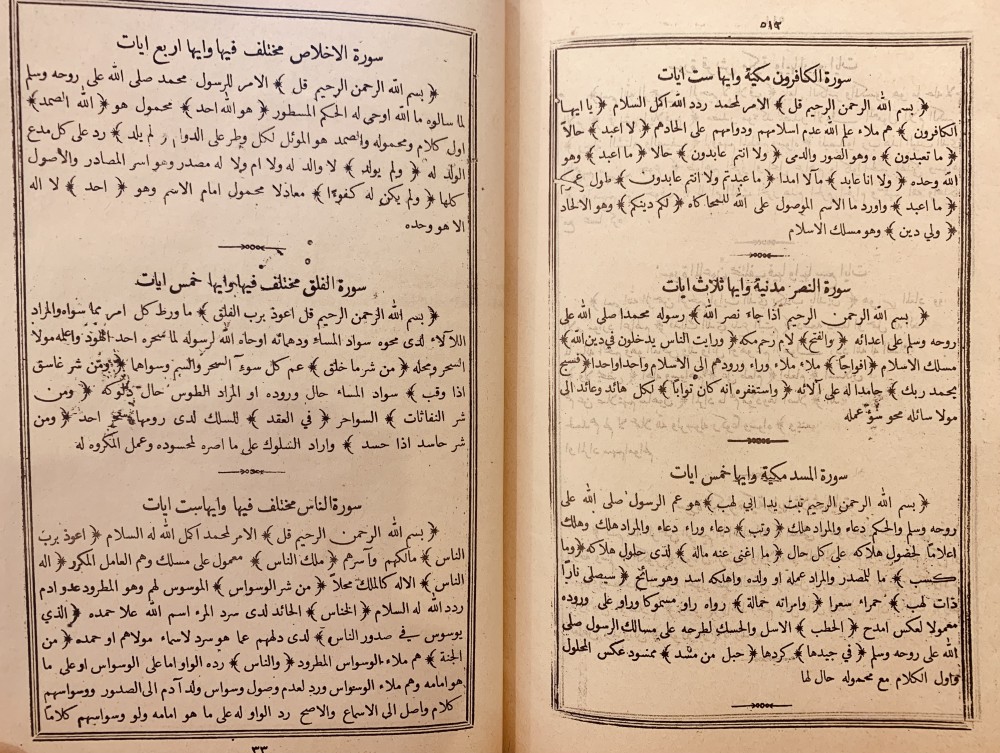 سورة الكافرون مكية وايها ست ايات
﴿ بسم الله الرحمن الرحيم قل ﴾ الامر لمحمد ردد الله اكمل السلام ﴿ يا ايها
الكافرون ﴾ هم ملاء علم الله عدم اسلامهم ودوامهم على الحادهم ﴿ لا اعبد ﴾ حالا
﴿ ما تعبدون ﴾ ه وهو الصور والدمى ﴿ ولا انتم عابدون ﴾ حالا ﴿ ما اعبد ﴾ وهو
الله وحده ﴿ ولا انا عابد ﴾ مآلا امدا ﴿ ما عبدتم ولا انتم عابدون ﴾ طول عمركم
﴿ ما اعبد ﴾ واورد ما الاسم الموصول على الله للمحاكاه ﴿ لكم دينكم ﴾ وهو الالحاد
﴿ ولي دين ﴾ وهو مسلك الاسلام
سورة النصر مدنية وايها ثلاث ايات
﴿ بسم الله الرحمن الرحيم اذا جاء نصر الله ﴾ رسوله محمدا صلى الله على
روحه وسلم على اعدائه ﴿ والفتح ﴾ لام رحم مكه ﴿ ورايت الناس يدخلون في دين الله ﴾
مسلك الاسلام ﴿ افواجا ﴾ ملاء ملاء وراء ورودهم الى الاسلام واحدا واحدا ﴿ فسبح
بحمد ربك ﴾ حامدا له على آلائه ﴿ واستغفره انه كان توابا ﴾ لكل هائد وعائد الى
مولا سائله محو سوء عمله
سورة المسد مكية وايها خمس ايات
﴿ بسم الله الرحمن الرحيم تبت يدا ابي لهب ﴾ هو عم الرسول صلى الله على
روحه وسلم والحكم دعاء والمراد هلك ﴿ وتب ﴾ دعاء وراء دعاء والمراد هلك وهلك
اعلاما لحصول هلاكه على كل حال ﴿ ما اغنى عنه ماله ﴾ لدى حلول هلاكه ﴿ وما
كسب ﴾ ما للمصدر والمراد عمله او ولده واهلكه اسد وهو سائح ﴿ سيصلى نارا
ذات لهب ﴾ حمراء سعرا ﴿ وامراته حمالة ﴾ رواه راو مسموكا وراو على وروده
معمولا لعكس امدح ﴿ الحطب ﴾ الاسل والحسك لطرحه على مسالك الرسول صلى
الله على روحه وسلم ﴿ في جيدها ﴾ كردها ﴿ حبل من مسد ﴾ ممسود عكس المحلول
واول الكلام مع محموله حال لها
سورة الاخلاص مختلف فيها وايها اربع ايات
﴿ بسم الله الرحمن الرحيم قل ﴾ الامر للرسول محمد صلى الله على روحه وسلم
لما سالوه ما الله اوحى له الحكم المسطور ﴿ هو الله احد ﴾ محمول هو ﴿ الله الصمد ﴾
اول كلام ومحموله والصمد هو الموئل لكل وطر على الدوام ﴿ لم يلد ﴾ رد على كل مدع
الولد له ﴿ ولم يولد ﴾ لا والد له ولا ام ولا له مصدر وهو اسر المصادر والأصول
كلها ﴿ ولم يكن له كفوءا ﴾ معادلا محمول امام الاسم وهو ﴿ احد ﴾ لا اله
الا هو وحده
سورة الفلق مختلف فيها وايها خمس ايات
﴿ بسم الله الرحمن الرحيم قل اعوذ برب الفلق ﴾ ما ورط كل امر مما سواه والمراد
اللآلاء لدى محوه سواد المساء ودهمائه اوحاه الله لرسوله لما سحره احد الهود واعلمه مولاه
السحر ومحله ﴿ من شر ما خلق ﴾ عم كل سوء السحر والسم وسواهما ﴿ ومن شر غاسق
اذا وقب ﴾ سواد المساء حال وروده او المراد الطوس حال دلوكه ﴿ ومن
شر النفاثات ﴾ السواحر ﴿ في العقد ﴾ للمسلك لدى رومها سحر احد ﴿ ومن
شر حاسد اذا حسد ﴾ واراد السلوك على ما اصره لمحسوده وعمل المكروه له
سورة الناس مختلف فيها وايها ست ايات
﴿ بسم الله الرحمن الرحيم قل ﴾ الامر لمحمد اكمل الله له السلام ﴿ اعوذ برب
الناس ﴾ مالكهم وآسرهم ﴿ ملك الناس ﴾ معمول على مسلك وهم العامل المكرر ﴿ اله
الناس ﴾ الاله كالملك محلا ﴿ من شر الوسواس ﴾ الموسوس لهم وهو المطرود عدو ادم
ردد الله له السلام ﴿ الخناس ﴾ الحائد لدى سرد المرء اسم الله علا حمده ﴿ الذي
يوسوس في صدور الناس ﴾ لدى دلههم عما هو سرد لاسماء مولاهم او حمده ﴿ من
الجنة ﴾ هم ملاء الوسواس المطرود ﴿ والناس ﴾ رده الواو اما على الوسواس او على ما
هو امامه وهم ملاء الوسواس ورد لعدم وصول وسواس ولد آدم الى الصدور ووسواسهم
كلام واصل الى الاسماع والاصح رد الواو له على ما هو امامه ولو وسواسهم كلاما
٣٣